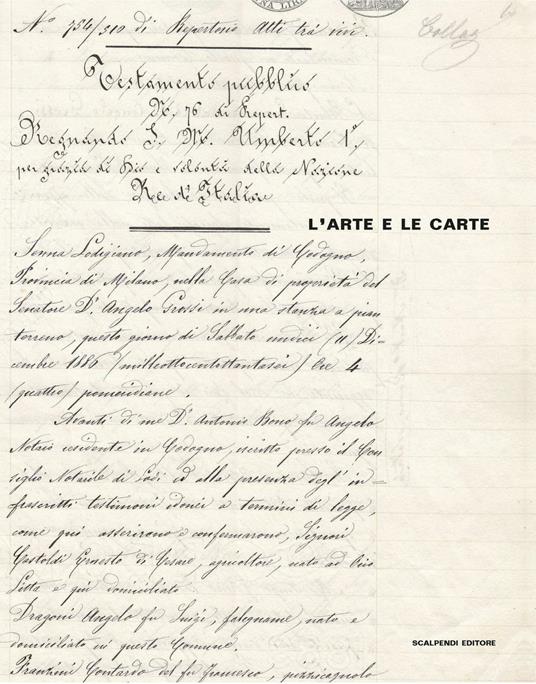 NA LIR
N.º 754/310 di Repertorio Atti trà vivi.
Collaz
Testamento pubblico
N. 76 di Repert.
Regnando S. M. Umberto 1º,
per grazia di Dio e volontà della Nazione
Re d'Italia
L'ARTE E LE CARTE
Senna Lodigiano, Mandamento di Codogno,
Provincia di Milano, nella Casa di proprietà del
Senatore Dr. Angelo Grossi in una stanza a pian
terreno, questo giorno di Sabbato undici (11) Di-
cembre 1886 (milleottocentottantasei) Ore 4
(quattro) pomeridiane.
Avanti di me Dr. Antonio Bono fu Angelo
Notaio residente in Codogno, iscritto presso il Con
siglio Notarile di Lodi ed alla presenza degl' in=
frascritti testimoni idonei a termini di legge,
come qui asserirono e confermarono, Signori
Gastoldi Ernesto di Cesare, agricoltore, nato ad Orio
Litta e qui domiciliato
Dragoni Angelo fu Luigi, falegname, nato e
domiciliato in questo Comune.
SCALPENDI EDITORE
Franzini Contardo del fu Francesco, pizzicagnolo